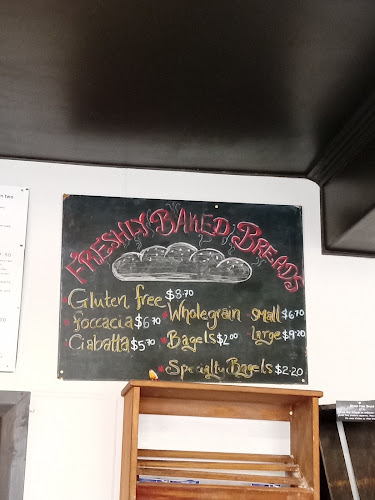 FRESHLY BAKED BREADS
Gluten free $8.70
foccacia $6.70
Ciabatta $5.70
Wholegrain small $6.70
large $9.20
Bagels $2.00
Specialty Bagels $2.20